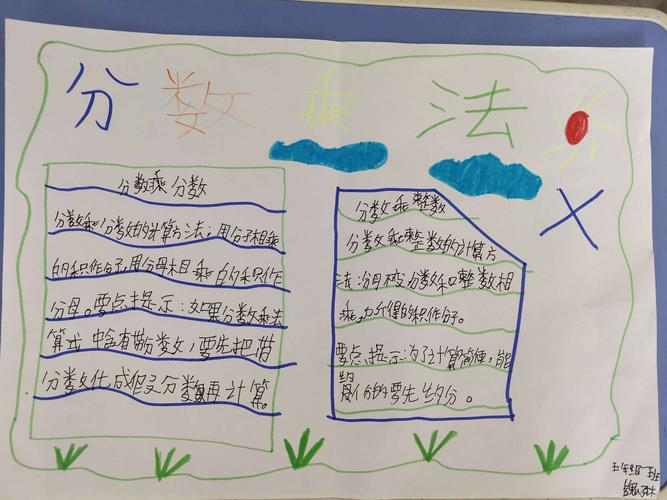 分数乘法
×
分数乘分数
分数乘分数的计算方法：用分子相乘
的积作分子，用分母相乘的积作
分母。要点提示：如果分数乘法
算式中含有带分数，要先把带
分数化成假分数再计算。
分数乘整数
分数乘整数的计算方
法：分母不变分数和整数相
乘，的积作分子。
要点提示：为了计算简便，能
约分的要先约分。
五年级一班